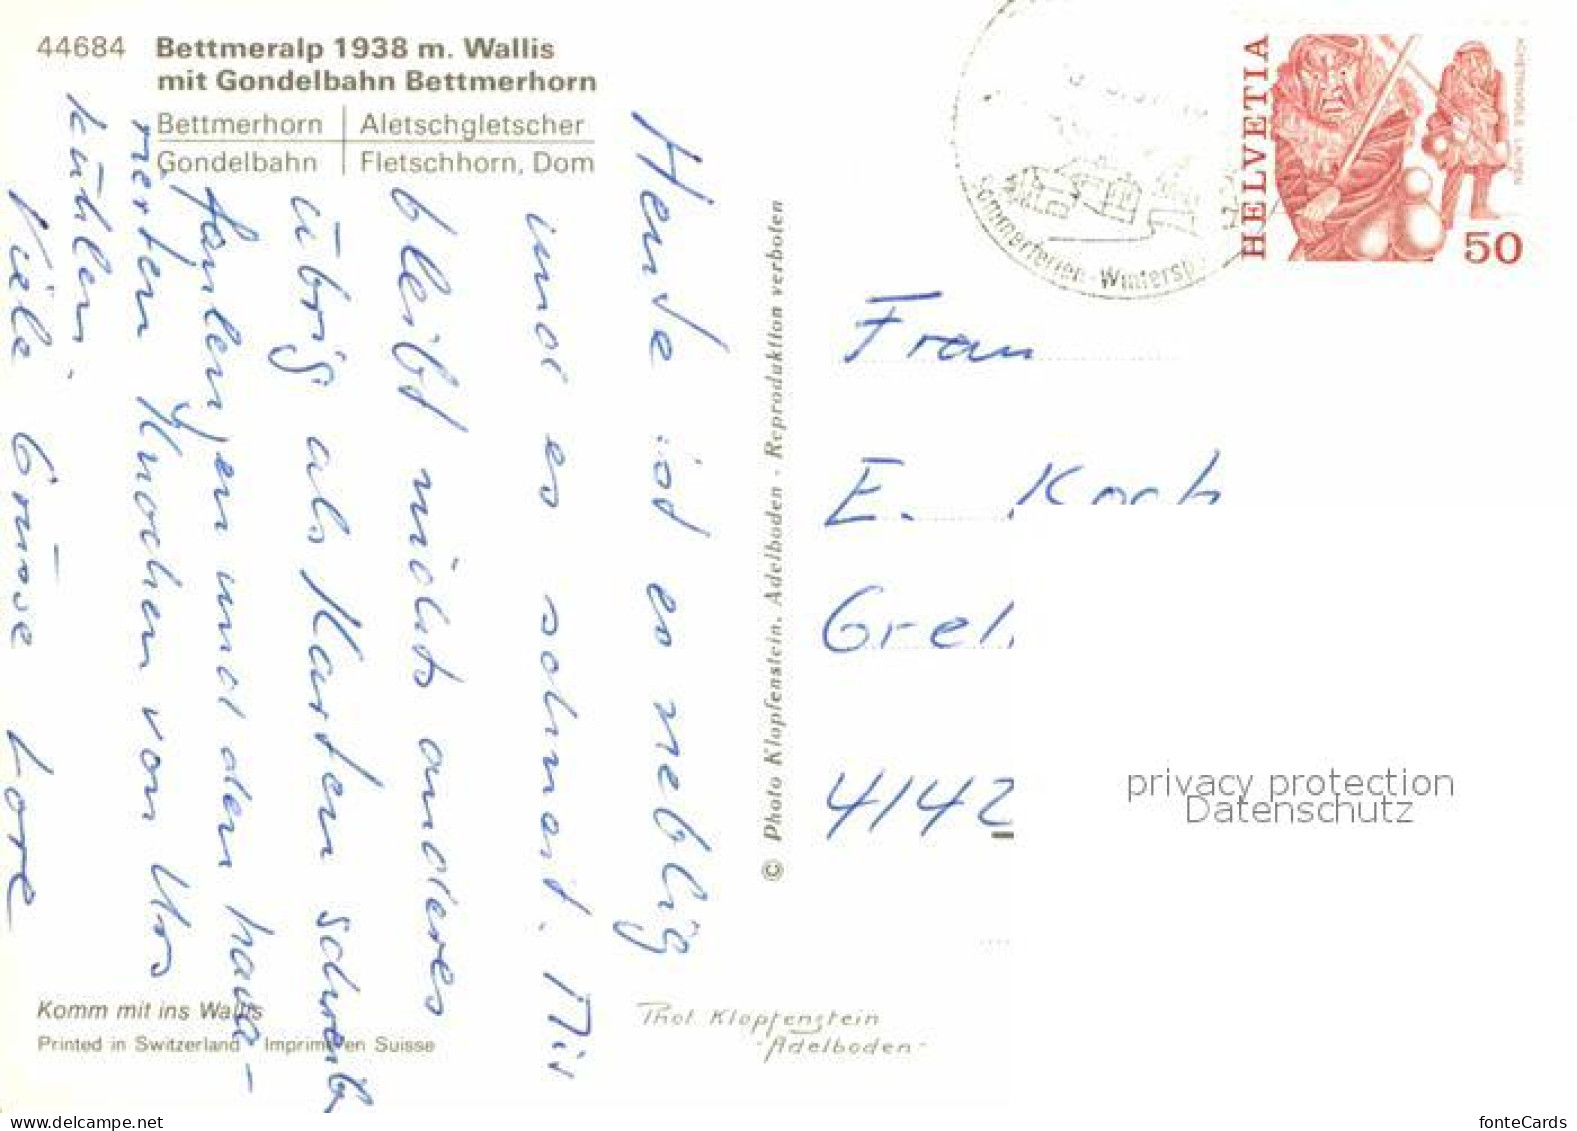 44684 Bettmeralp 1938 m. Wallis
mit Gondelbahn Bettmerhorn
Bettmerhorn Aletschgletscher
Gondelbahn Fletschhorn, Dom
Heute ist es neblig
und es schneit. Mir
bleibt nichts anderes
übrig als Karten schreib
faulenzen und den have-
rierten Knochen von Urs
kühlen.
Viele Grüsse Lore
Komm mit ins Wallis
Printed in Switzerland Imprimé en Suisse
© Photo Klopfenstein, Adelboden - Reproduktion verboten
Phot. Klopfenstein
-Adelboden-
Sommerferien-Wintersp
HELVETIA
ACHETRINGELE LAUPEN
50
Frau
E.
Grel
4142
privacy protection
Datenschutz
www.delcampe.net
fonteCards